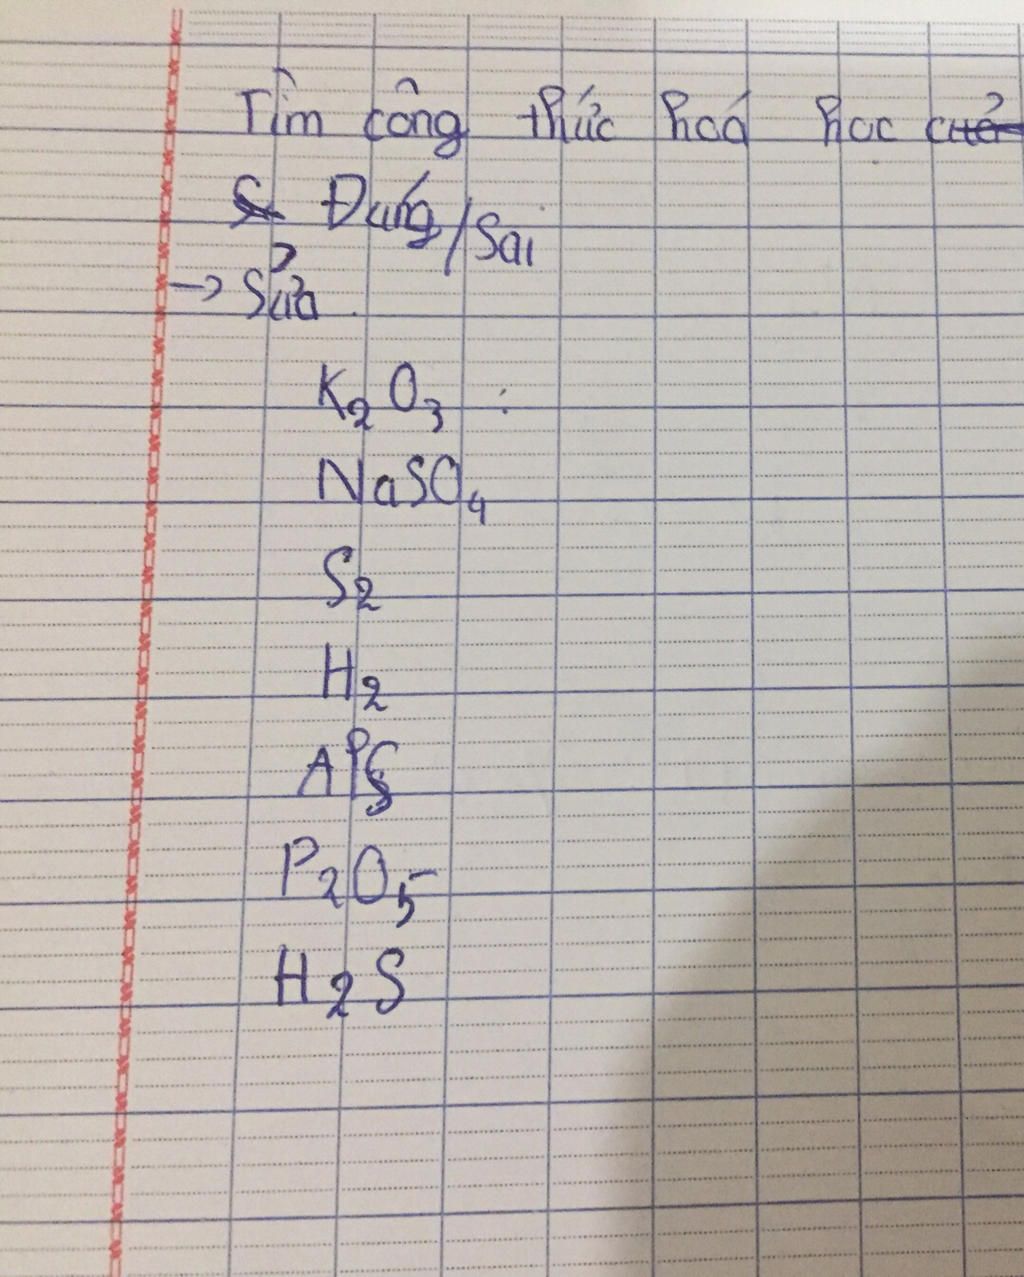 Tìm công thức hoá học
Đúng/Sai
→ Sửa.
K₂O₃ :
NaSO₄
S₂
H₂
P₂O₅
H₂S